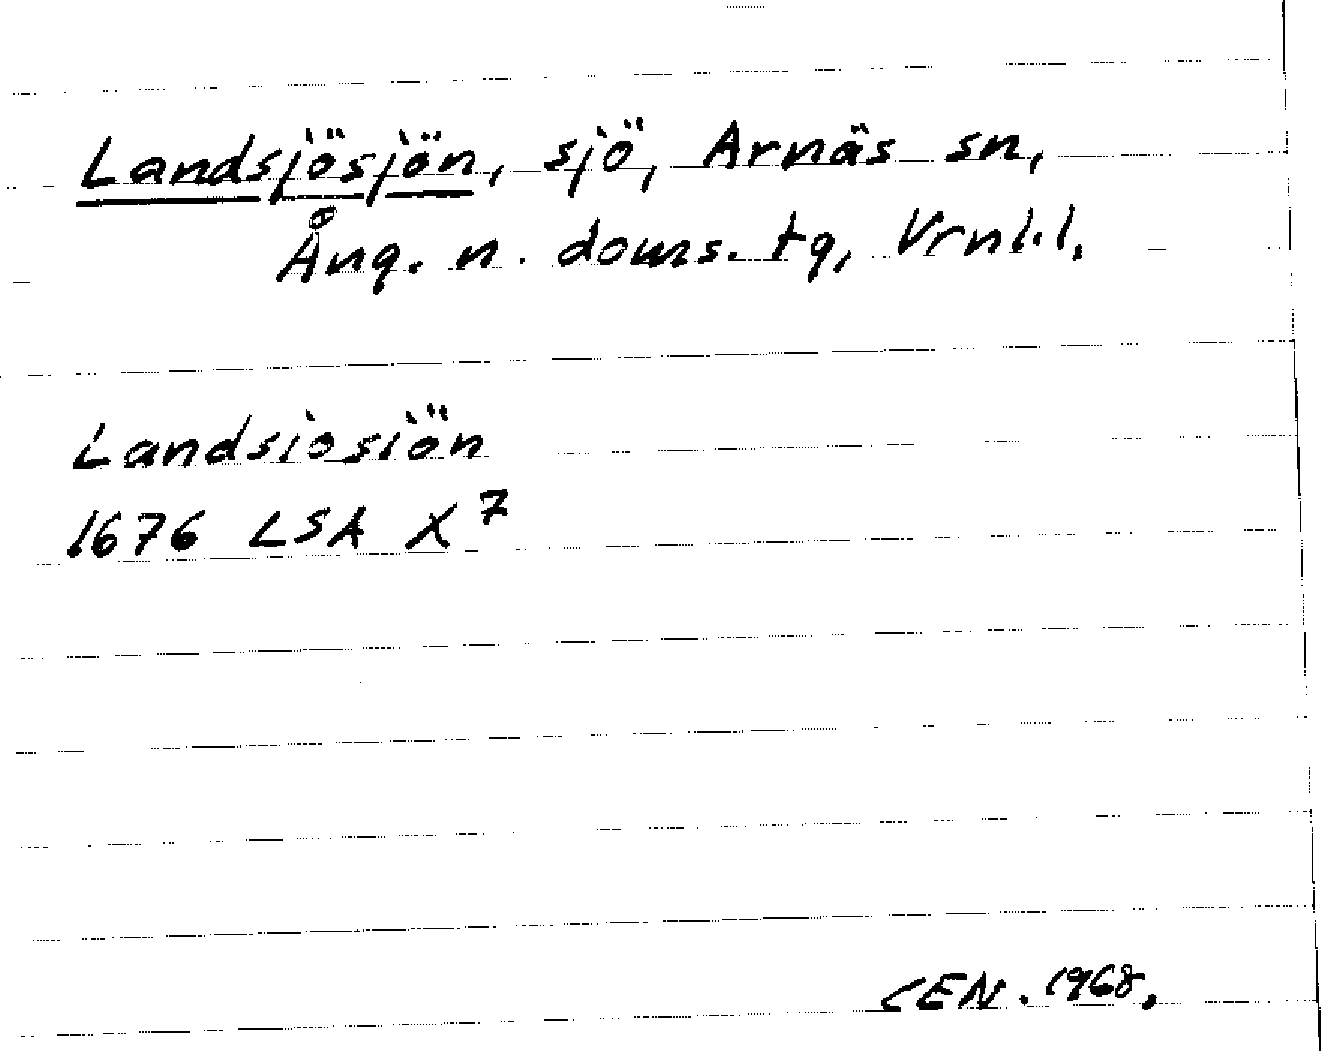 Landsjösjön, sjö, Arnäs sn,
Ång. n. doms. tg, Vrnl.l.
Landsiosiön
1676 LSA X7
CEN. 1968.